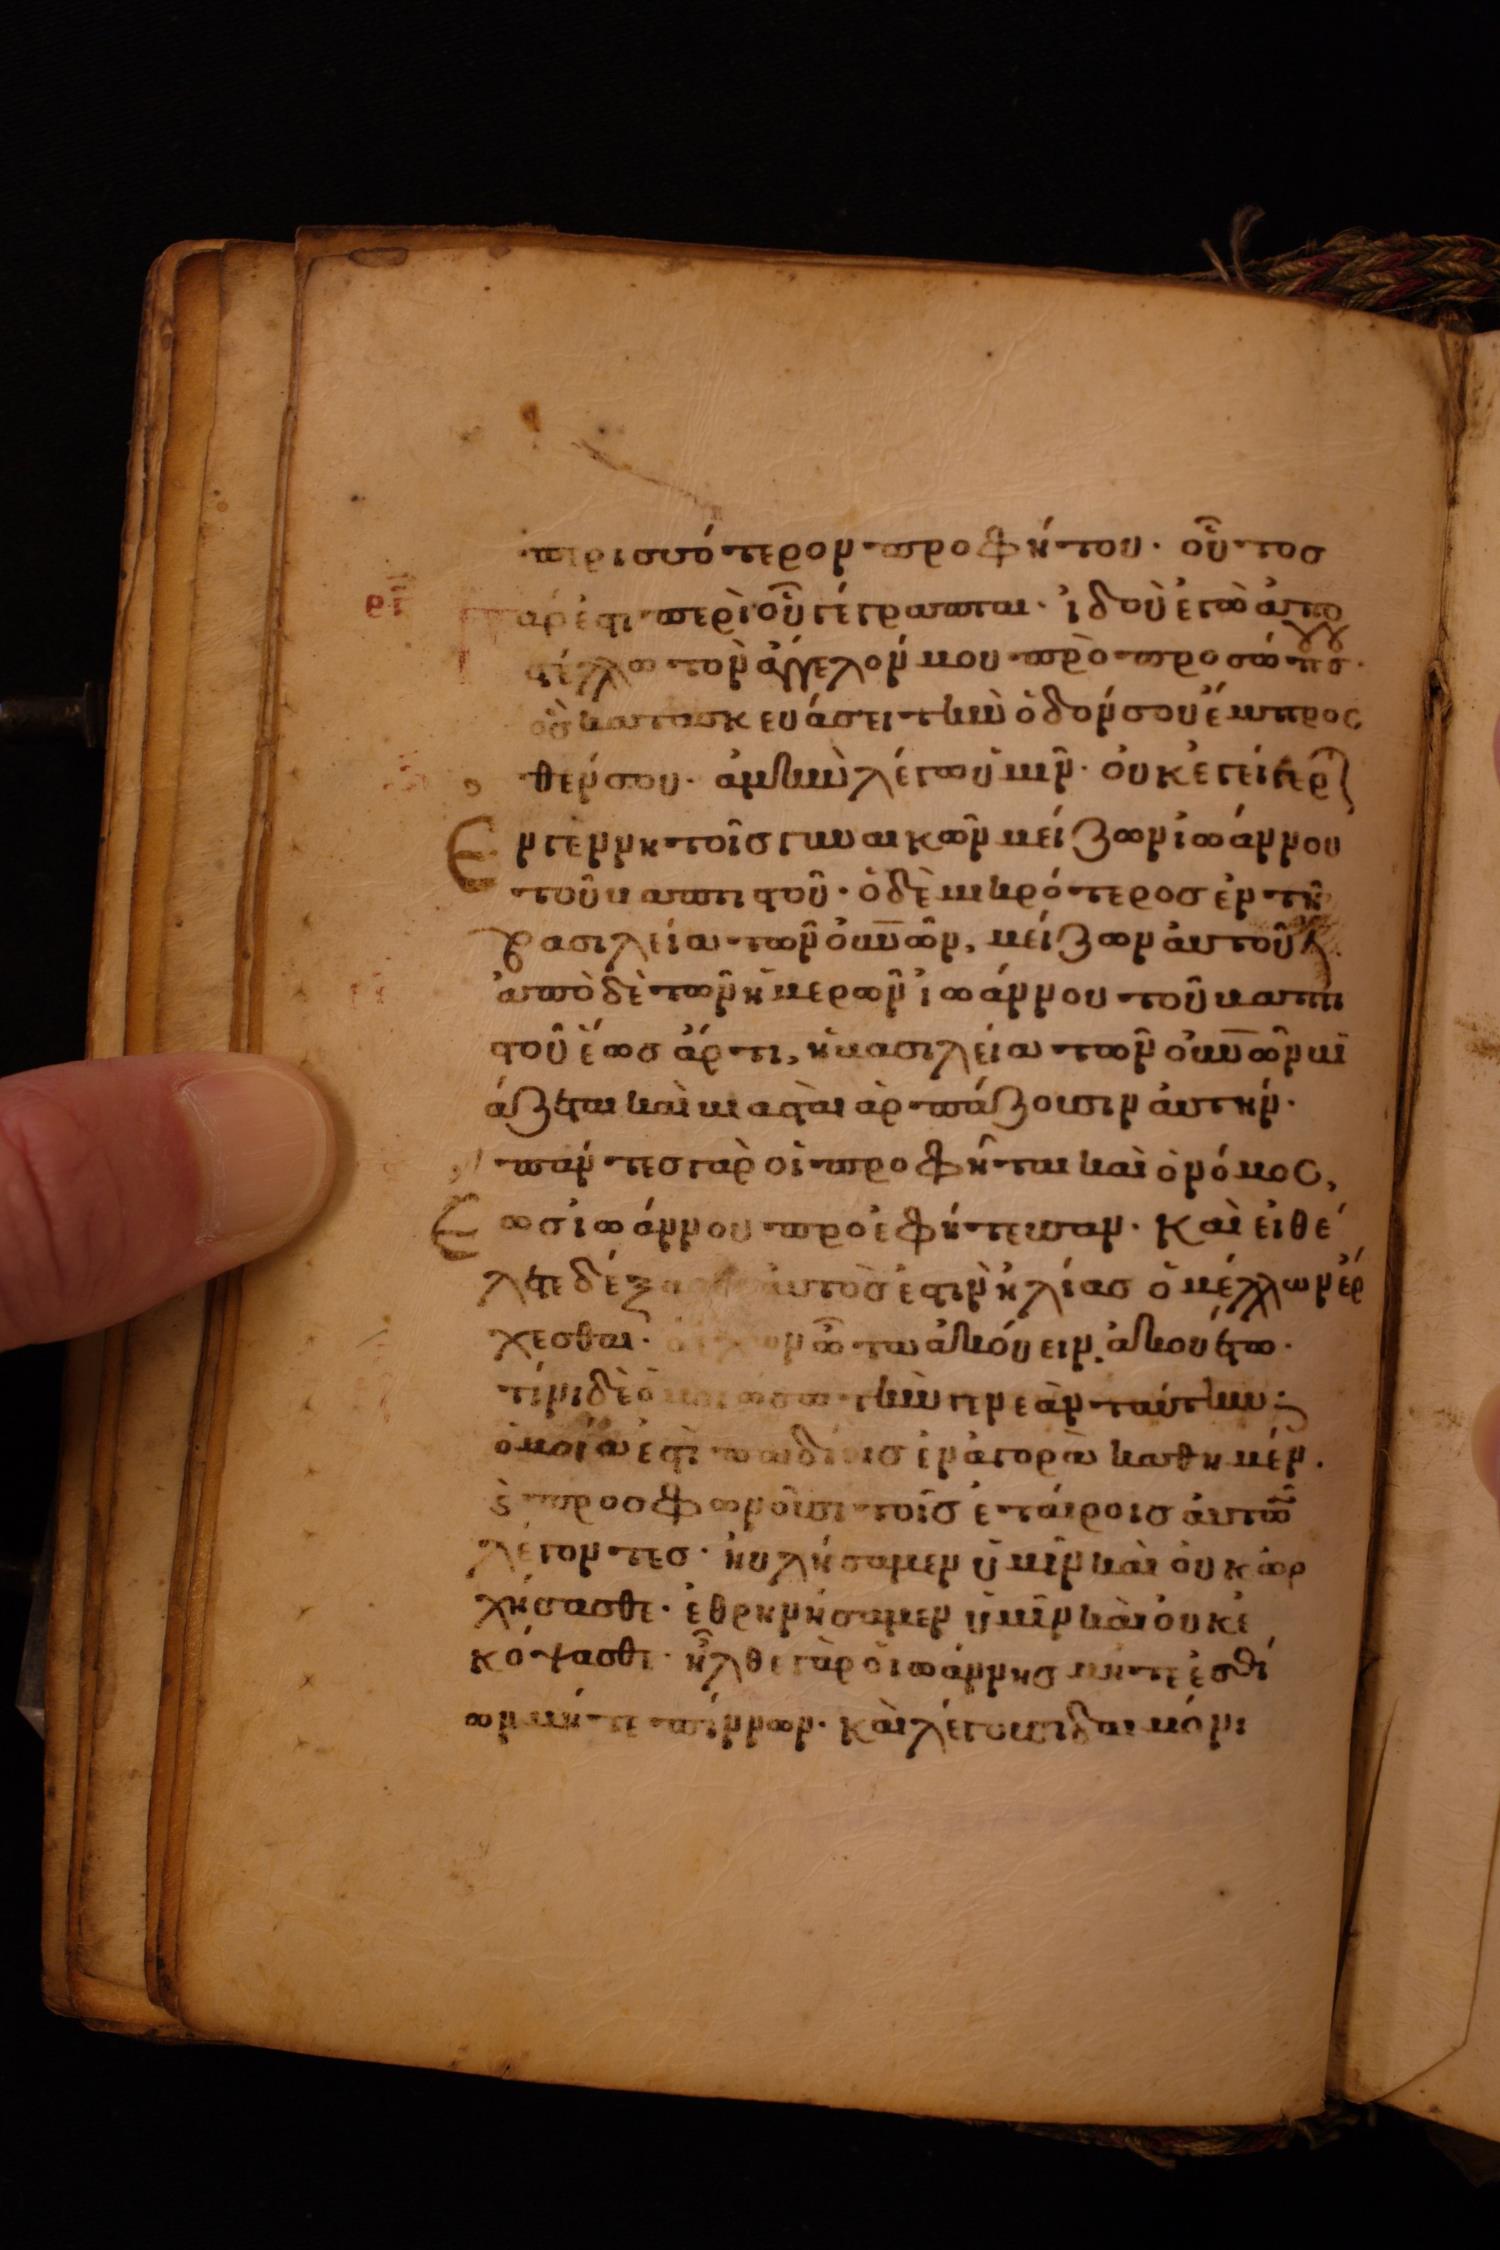 περισσότερον προφήτου· οὗτος
γάρ ἐστι περὶ οὗ γέγραπται· ἰδοὺ ἐγὼ ἀπο
στέλλω τὸν ἄγγελόν μου πρὸ προσώπου σου·
ὃς κατασκευάσει τὴν ὁδόν σου ἔμπροσ
θέν σου· ἀμὴν λέγω ὑμῖν· οὐκ ἐγείγερ
Εν γεννητοῖς γυναικῶν μείζων ἰωάννου
τοῦ βαπτιστοῦ· ὁ δὲ μικρότερος ἐν τῆ
βασιλεία τῶν οὐνῶν, μείζων αὐτοῦ
ἀπὸ δὲ τῶν ἡμερῶν ἰωάννου τοῦ βαπτι
στοῦ ἕως ἄρτι, ἡ βασιλεία τῶν οὐνῶν βι
άζεται καὶ βιασταὶ ἁρπάζουσιν αὐτήν·
πάντες γὰρ οἱ προφῆται καὶ ὁ νόμος,
Εως ἰωάννου προεφήτευσαν· καὶ εἰ θέ
λετε δέξασθαι αὐτὸς ἐστὶν ἠλίας ὁ μέλλων ἔρ
χεσθαι· ὁ ἔχων ὦτα ἀκούειν ἀκουέτω·
τίνι δὲ ὁμοιώσω τὴν γενεὰν ταύτην;
ὁμοία ἐστὶ παιδίοις ἐν ἀγορᾶ καθημέν·
ἃ προσφωνοῦσι τοῖς ἑταίροις αὐτῶν
λέγοντες· ηὐλήσαμεν ὑμῖν καὶ οὐκ ὠρ
χήσασθε· ἐθρηνήσαμεν ὑμῖν καὶ οὐκ ἐ
κόψασθε· ἦλθε γὰρ ὁ ἰωάννης μήτε ἐσθί
ων μήτε πίνων· καὶ λέγουσι δαιμόνι